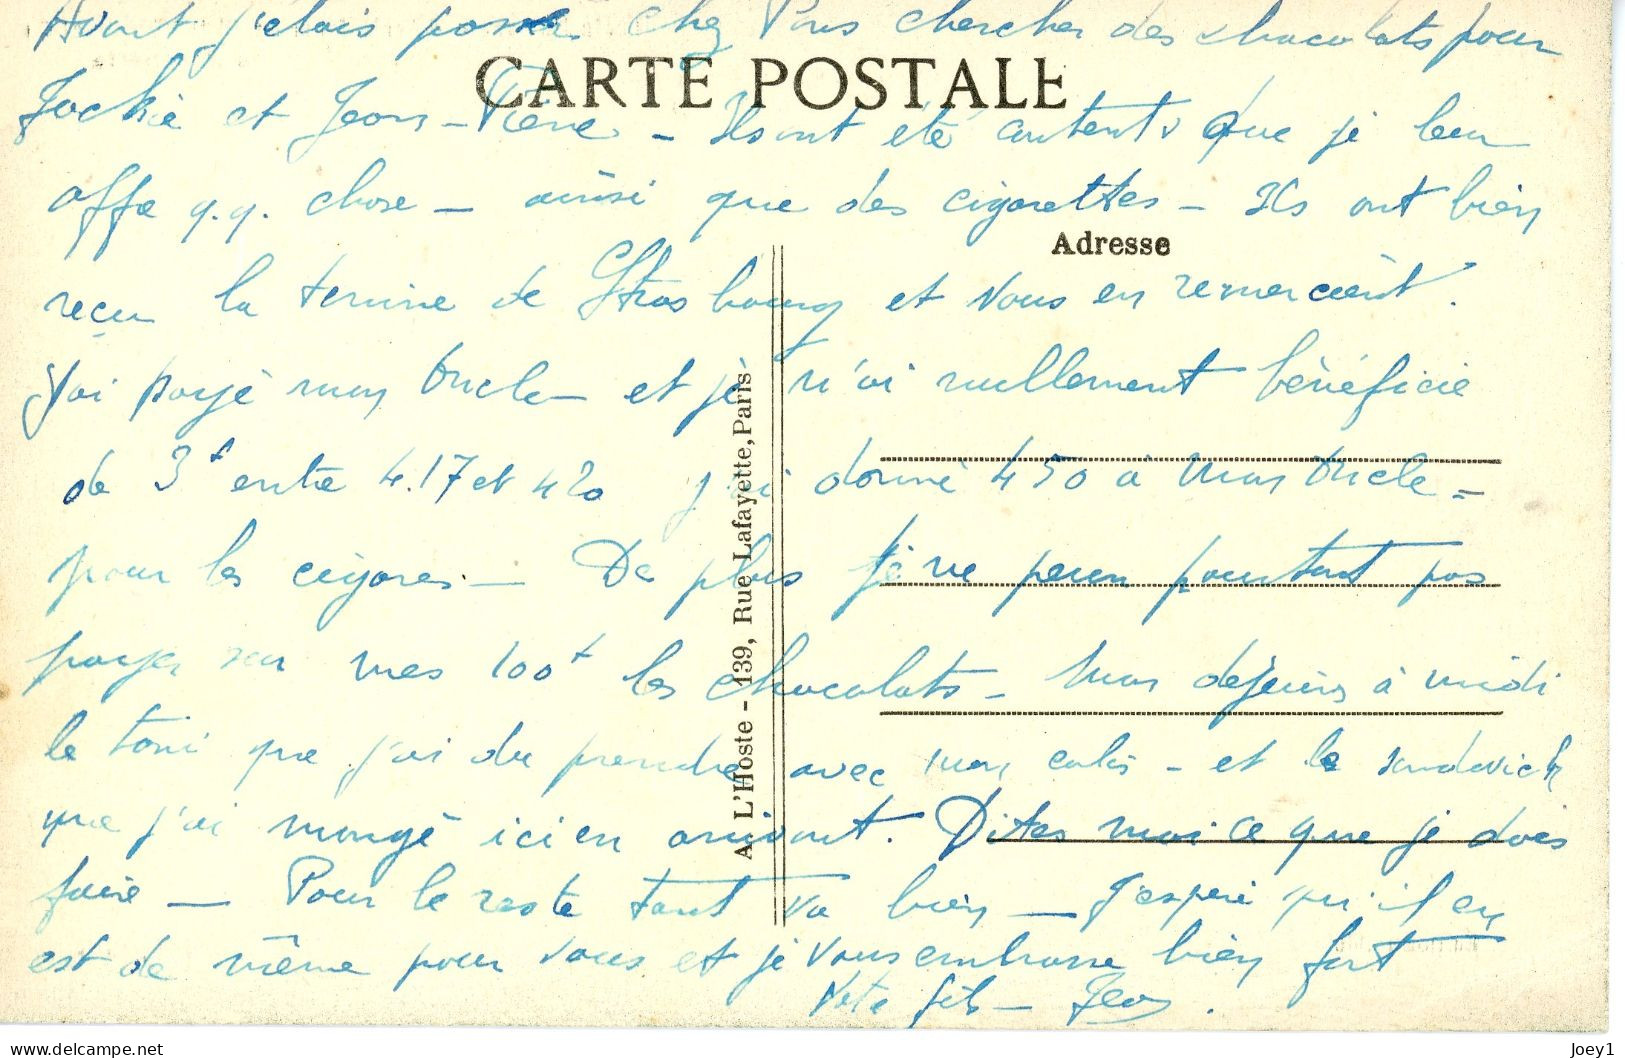 Avant j'étais passer chez Pons chercher des chocolats pour
CARTE POSTALE
Jackie et Jean-Pierre - Ils ont été contents que je leur
offre q.q. chose - ainsi que des cigarettes - Ils ont bien
Adresse
reçu la terrine de Strasbourg et vous en remercient.
J'ai payé mon oncle et je n'ai nullement bénéficié
de 3f entre 4.17 et 420 j'ai donné 450 à mon oncle =
pour les cigares. - De plus je ne peux pourtant pas
payer sur mes 100f les chocolats - Mon déjeuner à midi
le que j'ai du prendre avec mon colis - et le sandwich
que j'ai mangé ici en arrivant. Dites moi ce que je dois
faire - Pour le reste tout va bien - J'espère qu'il en
est de même pour vous et je vous embrasse bien fort
Votre fils - Jean.
A. L'Hoste - 139, Rue Lafayette, Paris
Joey1